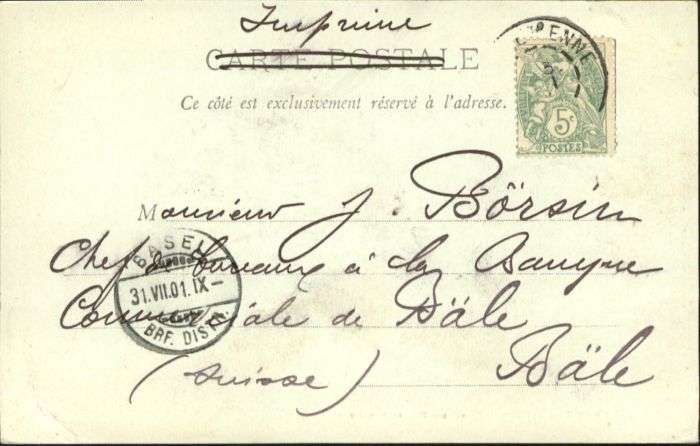 Imprimé
CARTE POSTALE
Ce côté est exclusivement réservé à l'adresse.
5c
POSTES
Monsieur J. Börsin
Chef de bureaux à la Banque
Commerciale de Bâle
(Suisse) Bâle
BASEL
31.VII.01.IX-
BRF. DISTR.